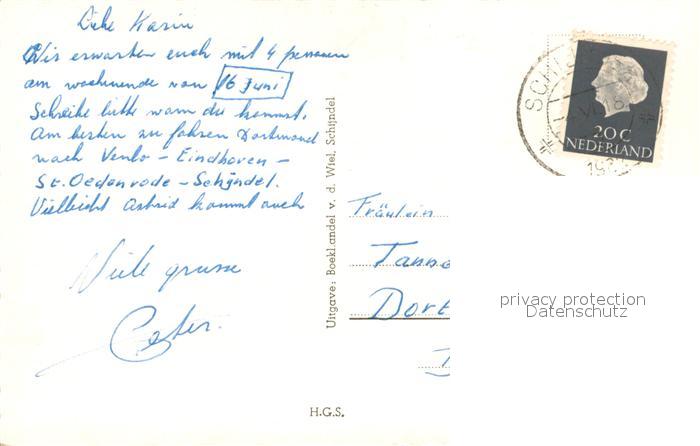 Liebe Karin
Wir erwarten euch mit 4 personen
am wochenende von 16 Juni
Schreibe bitte wann du kommst.
Am besten zu fahren Dortmund
nach Venlo - Eindhoven -
St. Oedenrode - Schijndel.
Vielleicht Astrid kommt auch
Viele grusse
Uitgave: Boekhandel v. d. Wiel, Schijndel
H.G.S.
SCHI
20 C
NEDERLAND
Fräulein
Tanne
Dort
privacy protection
Datenschutz